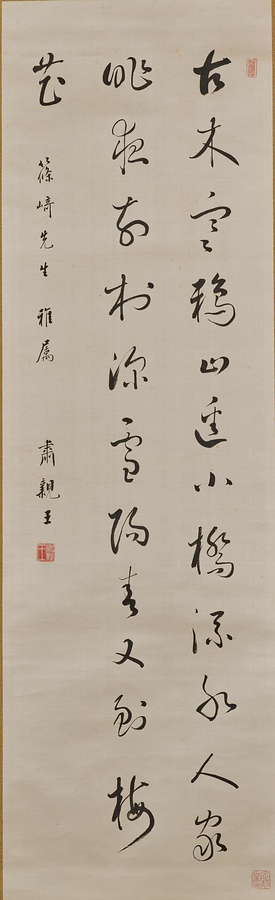 古木寒鴉山逕小橋流水人家
昨夜前村深雪陽春又到梅
花 篠崎先生 雅屬 肅親王